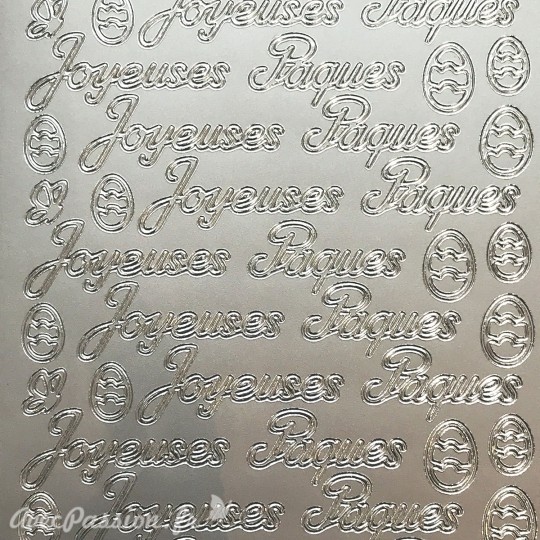 Joyeuses Pâques
Joyeuses Pâques
Joyeuses Pâques
Joyeuses Pâques
Joyeuses Pâques
Joyeuses Pâques
Joyeuses Pâques
Joyeuses Pâques
Joyeuses Pâques
AvecPassion.fr